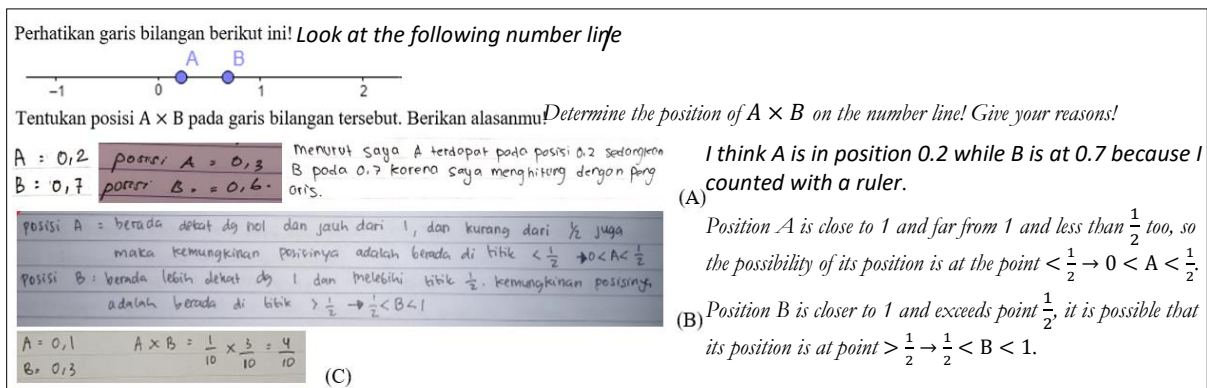 Perhatikan garis bilangan berikut ini! Look at the following number line
A B
−1 0 1 2
Tentukan posisi A × B pada garis bilangan tersebut. Berikan alasanmu! Determine the position of A × B on the number line! Give your reasons!
A = 0,2
B = 0,7
posisi A = 0,3
posisi B = 0,6.
menurut saya A terdapat pada posisi 0.2 sedangkan
B pada 0.7 karena saya menghitung dengan peng
aris.
(A)
I think A is in position 0.2 while B is at 0.7 because I
counted with a ruler.
posisi A = berada dekat dg nol dan jauh dari 1, dan kurang dari ½ juga
maka kemungkinan posisinya adalah berada di titik < ½ → 0 < A < ½
posisi B : berada lebih dekat dg 1 dan melebihi titik ½. kemungkinan posisinya
adalah berada di titik > ½ → ½ < B < 1
(B)
Position A is close to 1 and far from 1 and less than 1/2 too, so
the possibility of its position is at the point < 1/2 → 0 < A < 1/2.
Position B is closer to 1 and exceeds point 1/2, it is possible that
its position is at point > 1/2 → 1/2 < B < 1.
A = 0,1 A × B = 1/10 × 3/10 = 4/10
B = 0,3
(C)